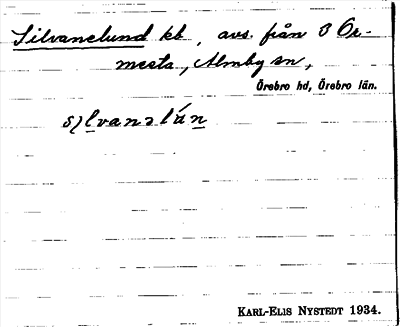 Silvanelund kb, avs. från Ö Or-
mesta, Almby sn,
Örebro hd, Örebro län.
KARL-ELIS NYSTEDT 1934.